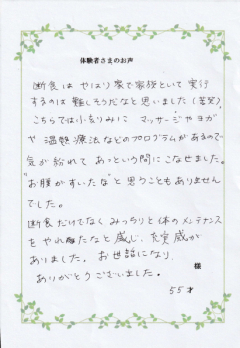 体験者さまのお声
断食は やはり家で家族といて 実行
するのは 難しそうだなと思いました(苦笑)
こちらでは小刻みに マッサージやヨガ
や 温熱療法などのプログラムがあるので
気が紛れて あっという間にこなせました。
"お腹がすいたな"と思うこともありません
でした。
断食だけでなく みっちりと体のメンテナンス
をやれたなと感じ、充実感が
ありました。お世話になり
ありがとうございました。
様
55才